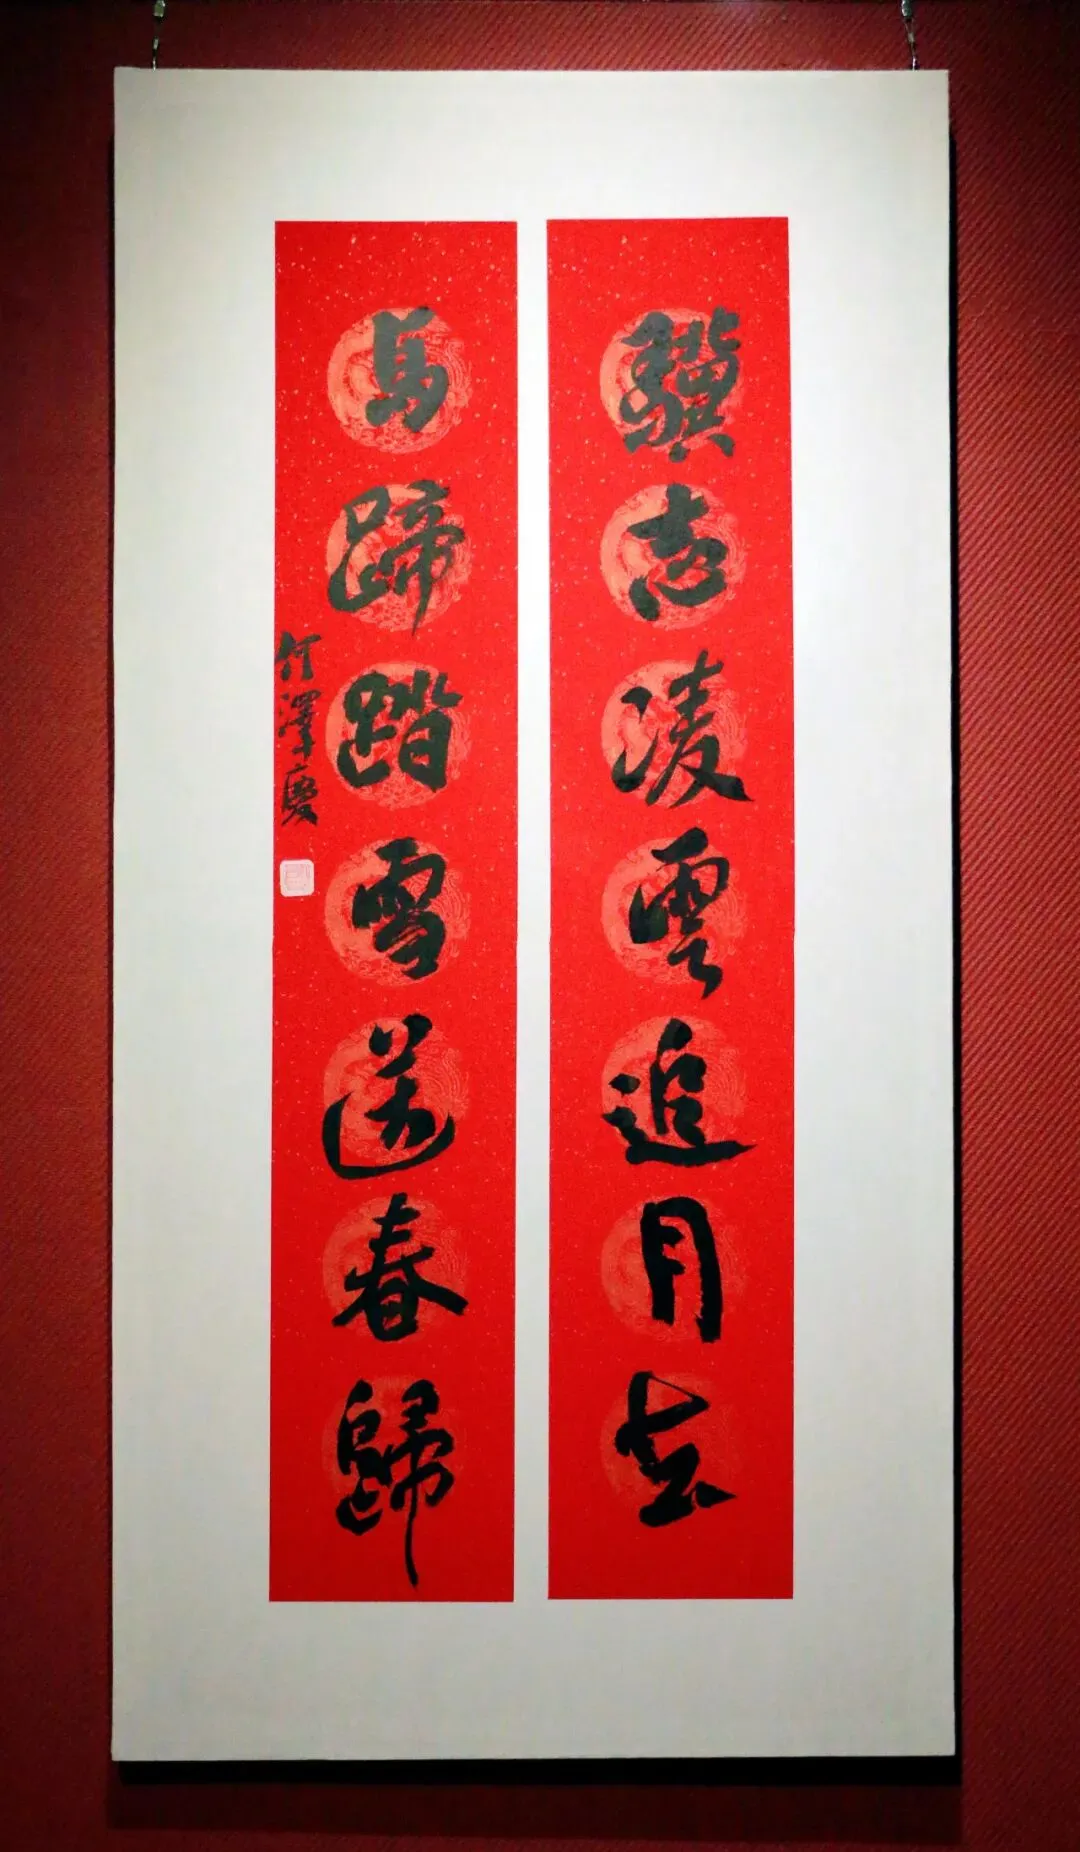 驥志凌雲追月去
馬蹄踏雪送春歸
何澤慶